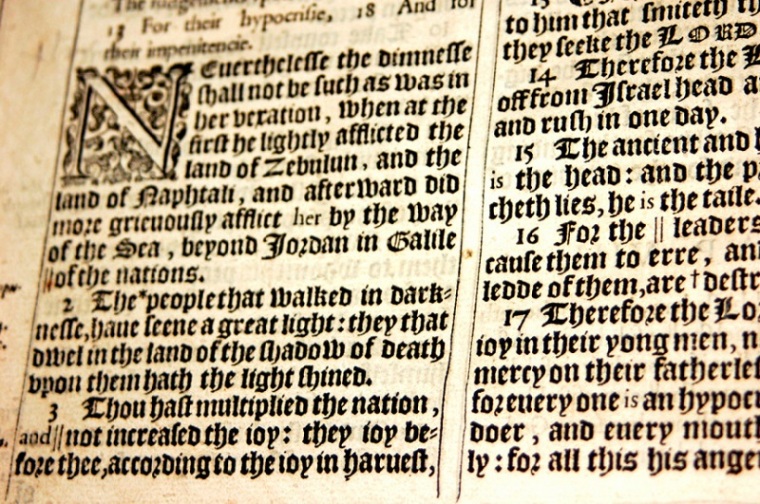 The
13 For their hypocrisie, 18 And for
their impenitencie.
NEuerthelesse the dimnesse
shall not be such as was in
her vexation, when at the
first he lightly afflicted the
land of Zebulun, and the
land of Naphtali, and afterward did
more grieuously afflict her by the way
of the Sea, beyond Jordan in Galile
||of the nations.
2 The*people that walked in dark-
nesse, haue seene a great light: they that
dwel in the land of the shadow of death
vpon them hath the light shined.
3 Thou hast multiplied the nation,
and||not increased the ioy: they ioy be-
fore thee, according to the ioy in haruest,
to him that smiteth
they seeke the LORD
14 Therefore the
off from Israel head
and rush in one day.
15 The ancient and
is the head: and the
cheth lies, he is the taile.
16 For the || leaders
cause them to erre, an
ledde of them, are † destr
17 Therefore the Lo
ioy in their yong men, n
mercy on their fatherles
for euery one is an hypoc
doer, and euery mouth
ly: for all this his ange